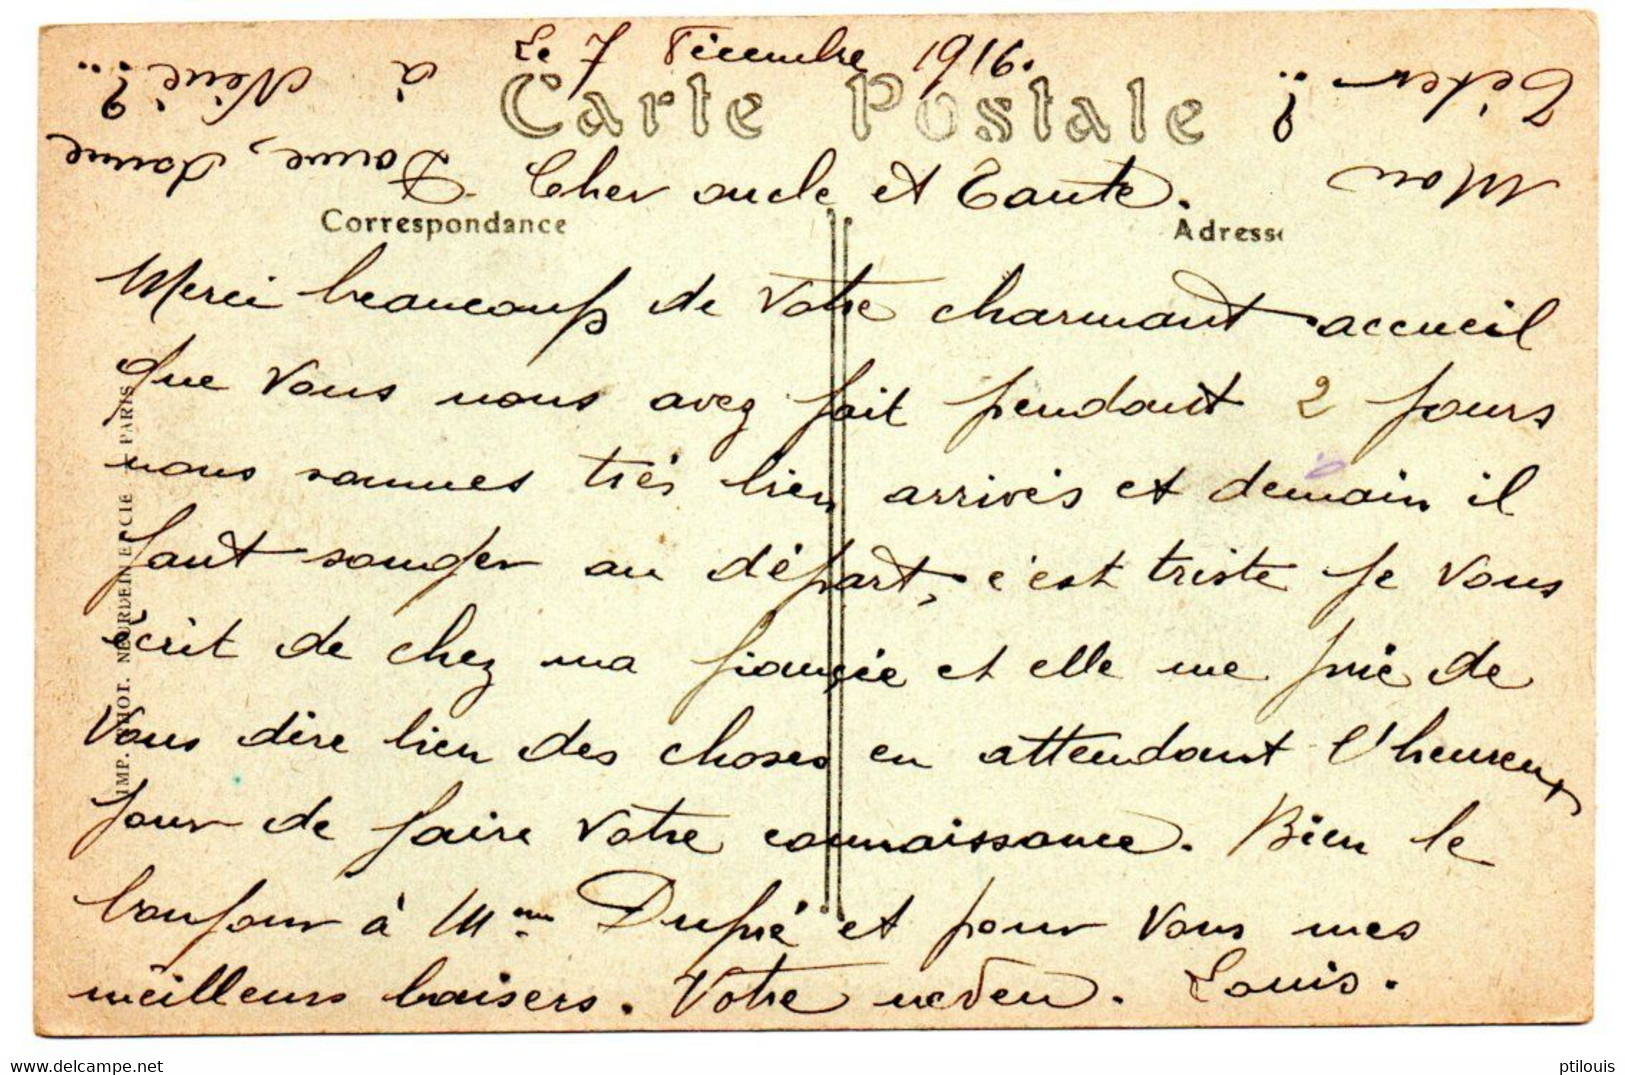 7 Décembre 1916.
Carte Postale
Cher oncle et Tante.
Correspondance
Adresse
Merci beaucoup de votre charmant accueil
que vous nous avez fait pendant 2 jours
nous sommes très bien arrivés et demain il
faut songer au départ, c'est triste je vous
écrit de chez ma fiancée et elle me prie de
vous dire bien des choses en attendant l'heureux
jour de faire votre connaissance. Bien le
bonjour à Mme Dupré et pour vous mes
meilleurs baisers. Votre neveu. Louis.
Donne, donne
à
?..
Mon
IMP. PHOT. NEURDEIN ET CIE - PARIS
www.delcampe.net
ptilouis